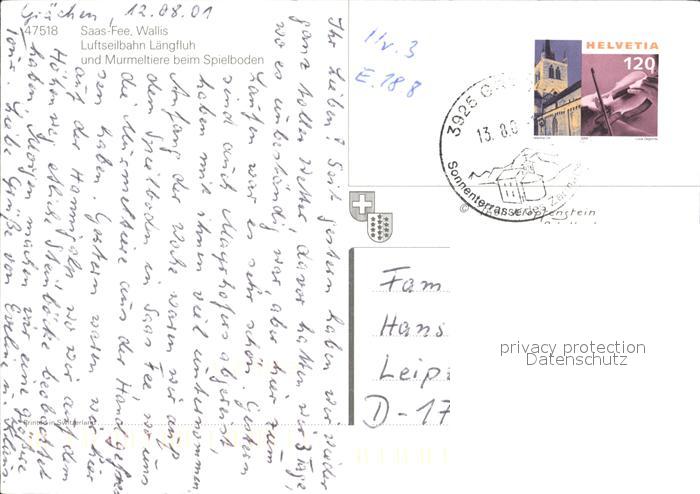 Grächen, 12.08.01
47518 Saas-Fee, Wallis
Luftseilbahn Längfluh
und Murmeltiere beim Spielboden
Ihr Lieben! Seit gestern haben wir wieder
ganz tolles Wetter davor hatten wir 3 Tage,
wo es unbeständig war, aber hier zum
Laufen war es sehr schön. Gestern
sind auch Mayrhofers abgereist,
haben mit ihnen viel unternommen,
Anfang der Woche waren wir auf
dem Spielboden in Saas Fee wo uns
die Murmeltiere aus der Hand gefres
sen haben. Gestern waren wir hier
auf der Hannigalp wo wir auf dem
Höhenweg etliche Steinböcke beobachtet
haben. Morgen machen wir eine größere
Tour. Liebe Grüße von Eveline u. Klaus
Printed in Switzerland
Nr. 3
E. 188
HELVETIA
120
3925
13.8.0
Sonnenterrasse des
©
Fam
Hans
Leip
D-17
privacy protection
Datenschutz